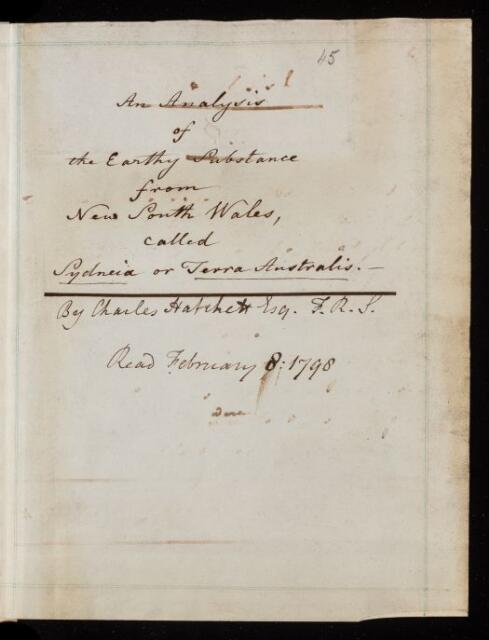 45
An Analysis
of
the Earthy Substance
from
New South Wales,
called
Sydneia or Terra Australis.—
By Charles Hatchett Esq. F.R.S.
Read February 8: 1798